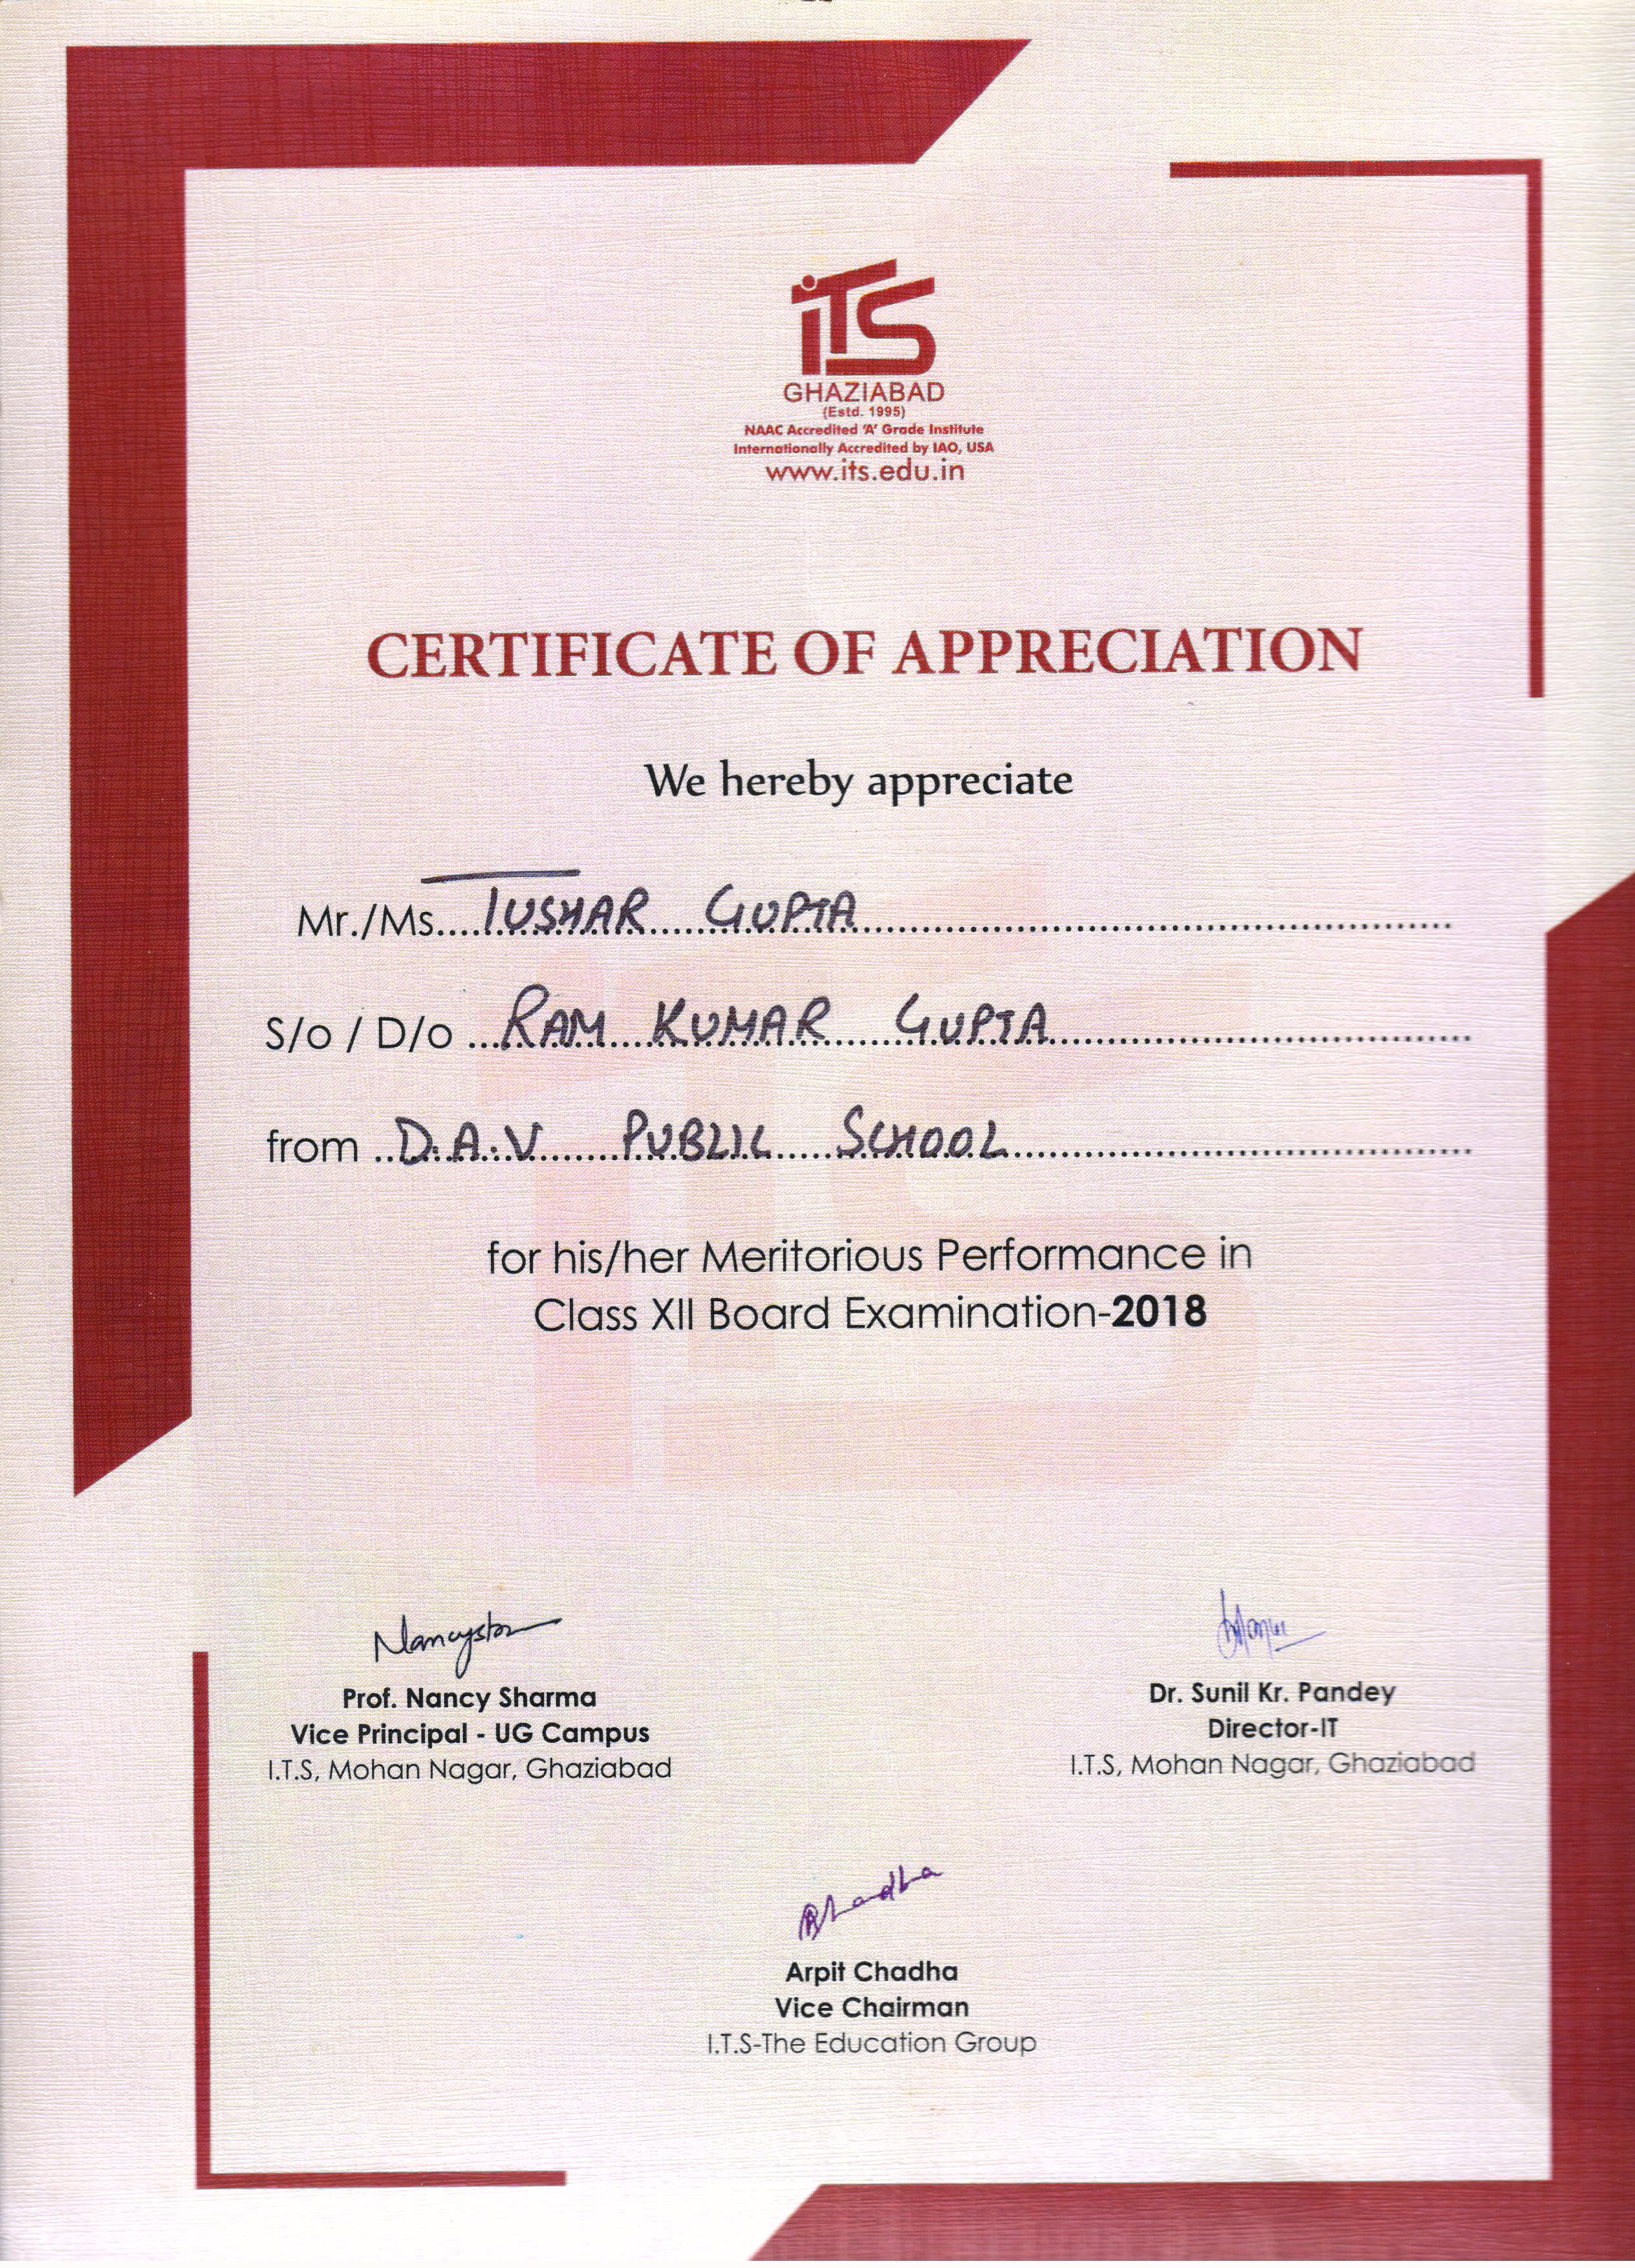 iTS
GHAZIABAD
(Estd. 1995)
NAAC Accredited 'A' Grade Institute
Internationally Accredited by IAO, USA
www.its.edu.in
CERTIFICATE OF APPRECIATION
We hereby appreciate
Mr./Ms....TUSHAR GUPTA
S/o / D/o ...RAM KUMAR GUPTA
from ..D.A.V PUBLIC SCHOOL
for his/her Meritorious Performance in
Class XII Board Examination-2018
Prof. Nancy Sharma
Vice Principal - UG Campus
I.T.S, Mohan Nagar, Ghaziabad
Dr. Sunil Kr. Pandey
Director-IT
I.T.S, Mohan Nagar, Ghaziabad
Arpit Chadha
Vice Chairman
I.T.S-The Education Group